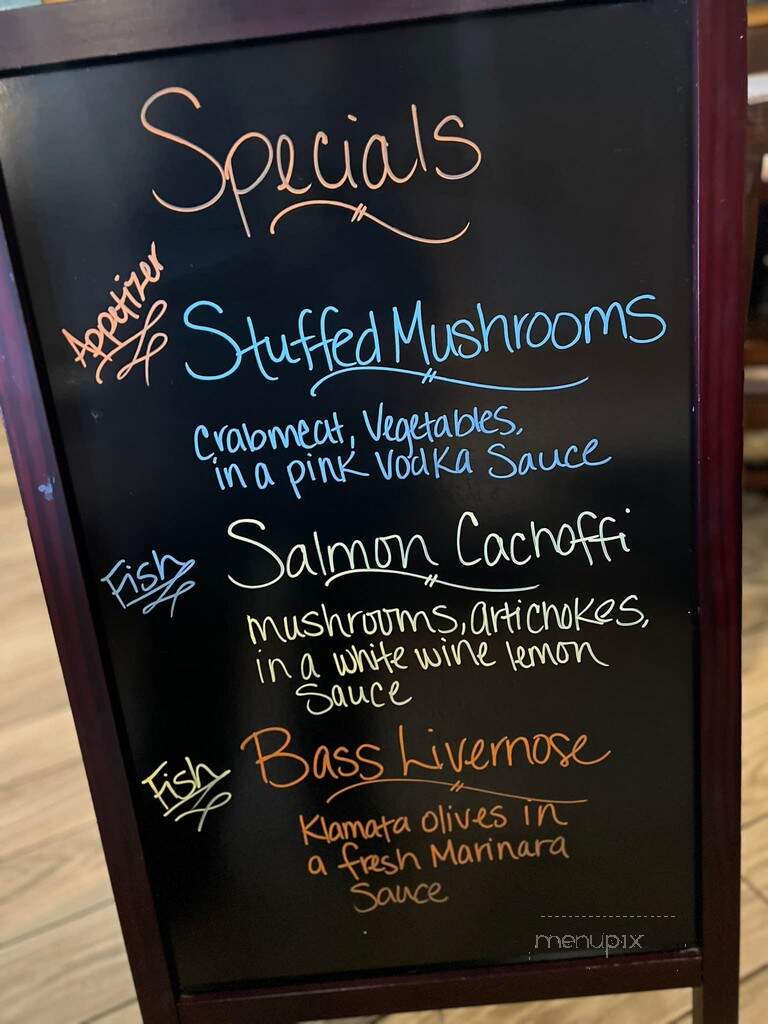 Specials
Appetizer
Stuffed Mushrooms
Crabmeat, Vegetables,
in a pink Vodka Sauce
Fish
Salmon Cachoffi
mushrooms, artichokes,
in a white wine lemon
Sauce
Fish
Bass Livernose
Klamata olives in
a fresh Marinara
Sauce
menupix